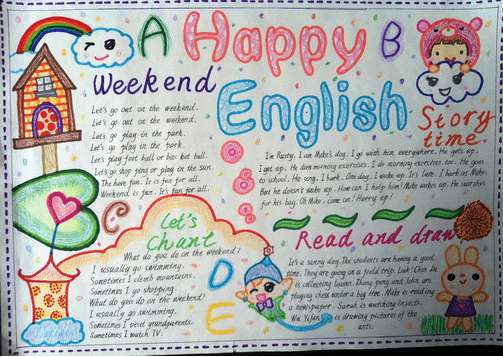 A Happy B
English
Weekend
Let's go out on the weekend.
Let's go out on the weekend.
Let's go play in the park.
Let's go play in the park.
Let's play foot ball or bas ket ball.
Let's go shop ping or play in the sun.
The have fun. It is fun for all.
Weekend is fun. It's fun for all.
C
Story
time.
I'm Rusty. I am Mike's dog. I go with him everywhere. He gets up.
I get up. He does morning exercises. I do morning exercises, too. He goes
to school. He sing. I bark. One day, I wake up. It's late. I bark at Mike.
But he doesn't wake up. How can I help him? Mike wakes up. He searches
for his bag. Oh Mike, come on! Hurry up!
Let's
Chant
What do you do on the weekend?
I usually go swimming.
Sometimes I climb mountains.
Sometimes I go shopping
What do you do on the weekend?
I usually go swimming.
Sometimes I visit grandparents.
Sometimes I watch TV.
D
E
Read and draw
It's a sunny day. The students are having a good
time. They are on a field trip. Look! Chen Jie
is collecting leaves. Zhang Peng and John are
playing chess under a big tree. Mike is reading
a newspaper. Sarah is watching insects.
Wu Yifan is drawing pictures of the
ants.